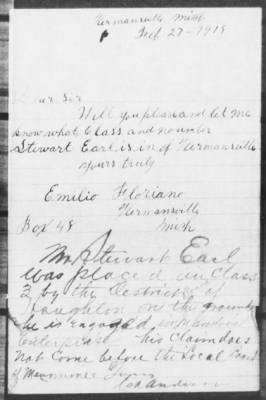 Hermansville, Mich
Feb 27-1918
Dear Sir
Will you please and let me
know what Class and noumber
Stewart Earl is in of Hermansville
yours truly
Emilio Floriano
Hermansville
Box 48 Mich
Mr Stewart Earl
was placed in Class
2 by the District of
Houghton on the grounds
he is Engaged in
Enterprise his Claim does
not Come before the Local Board
of Menominee